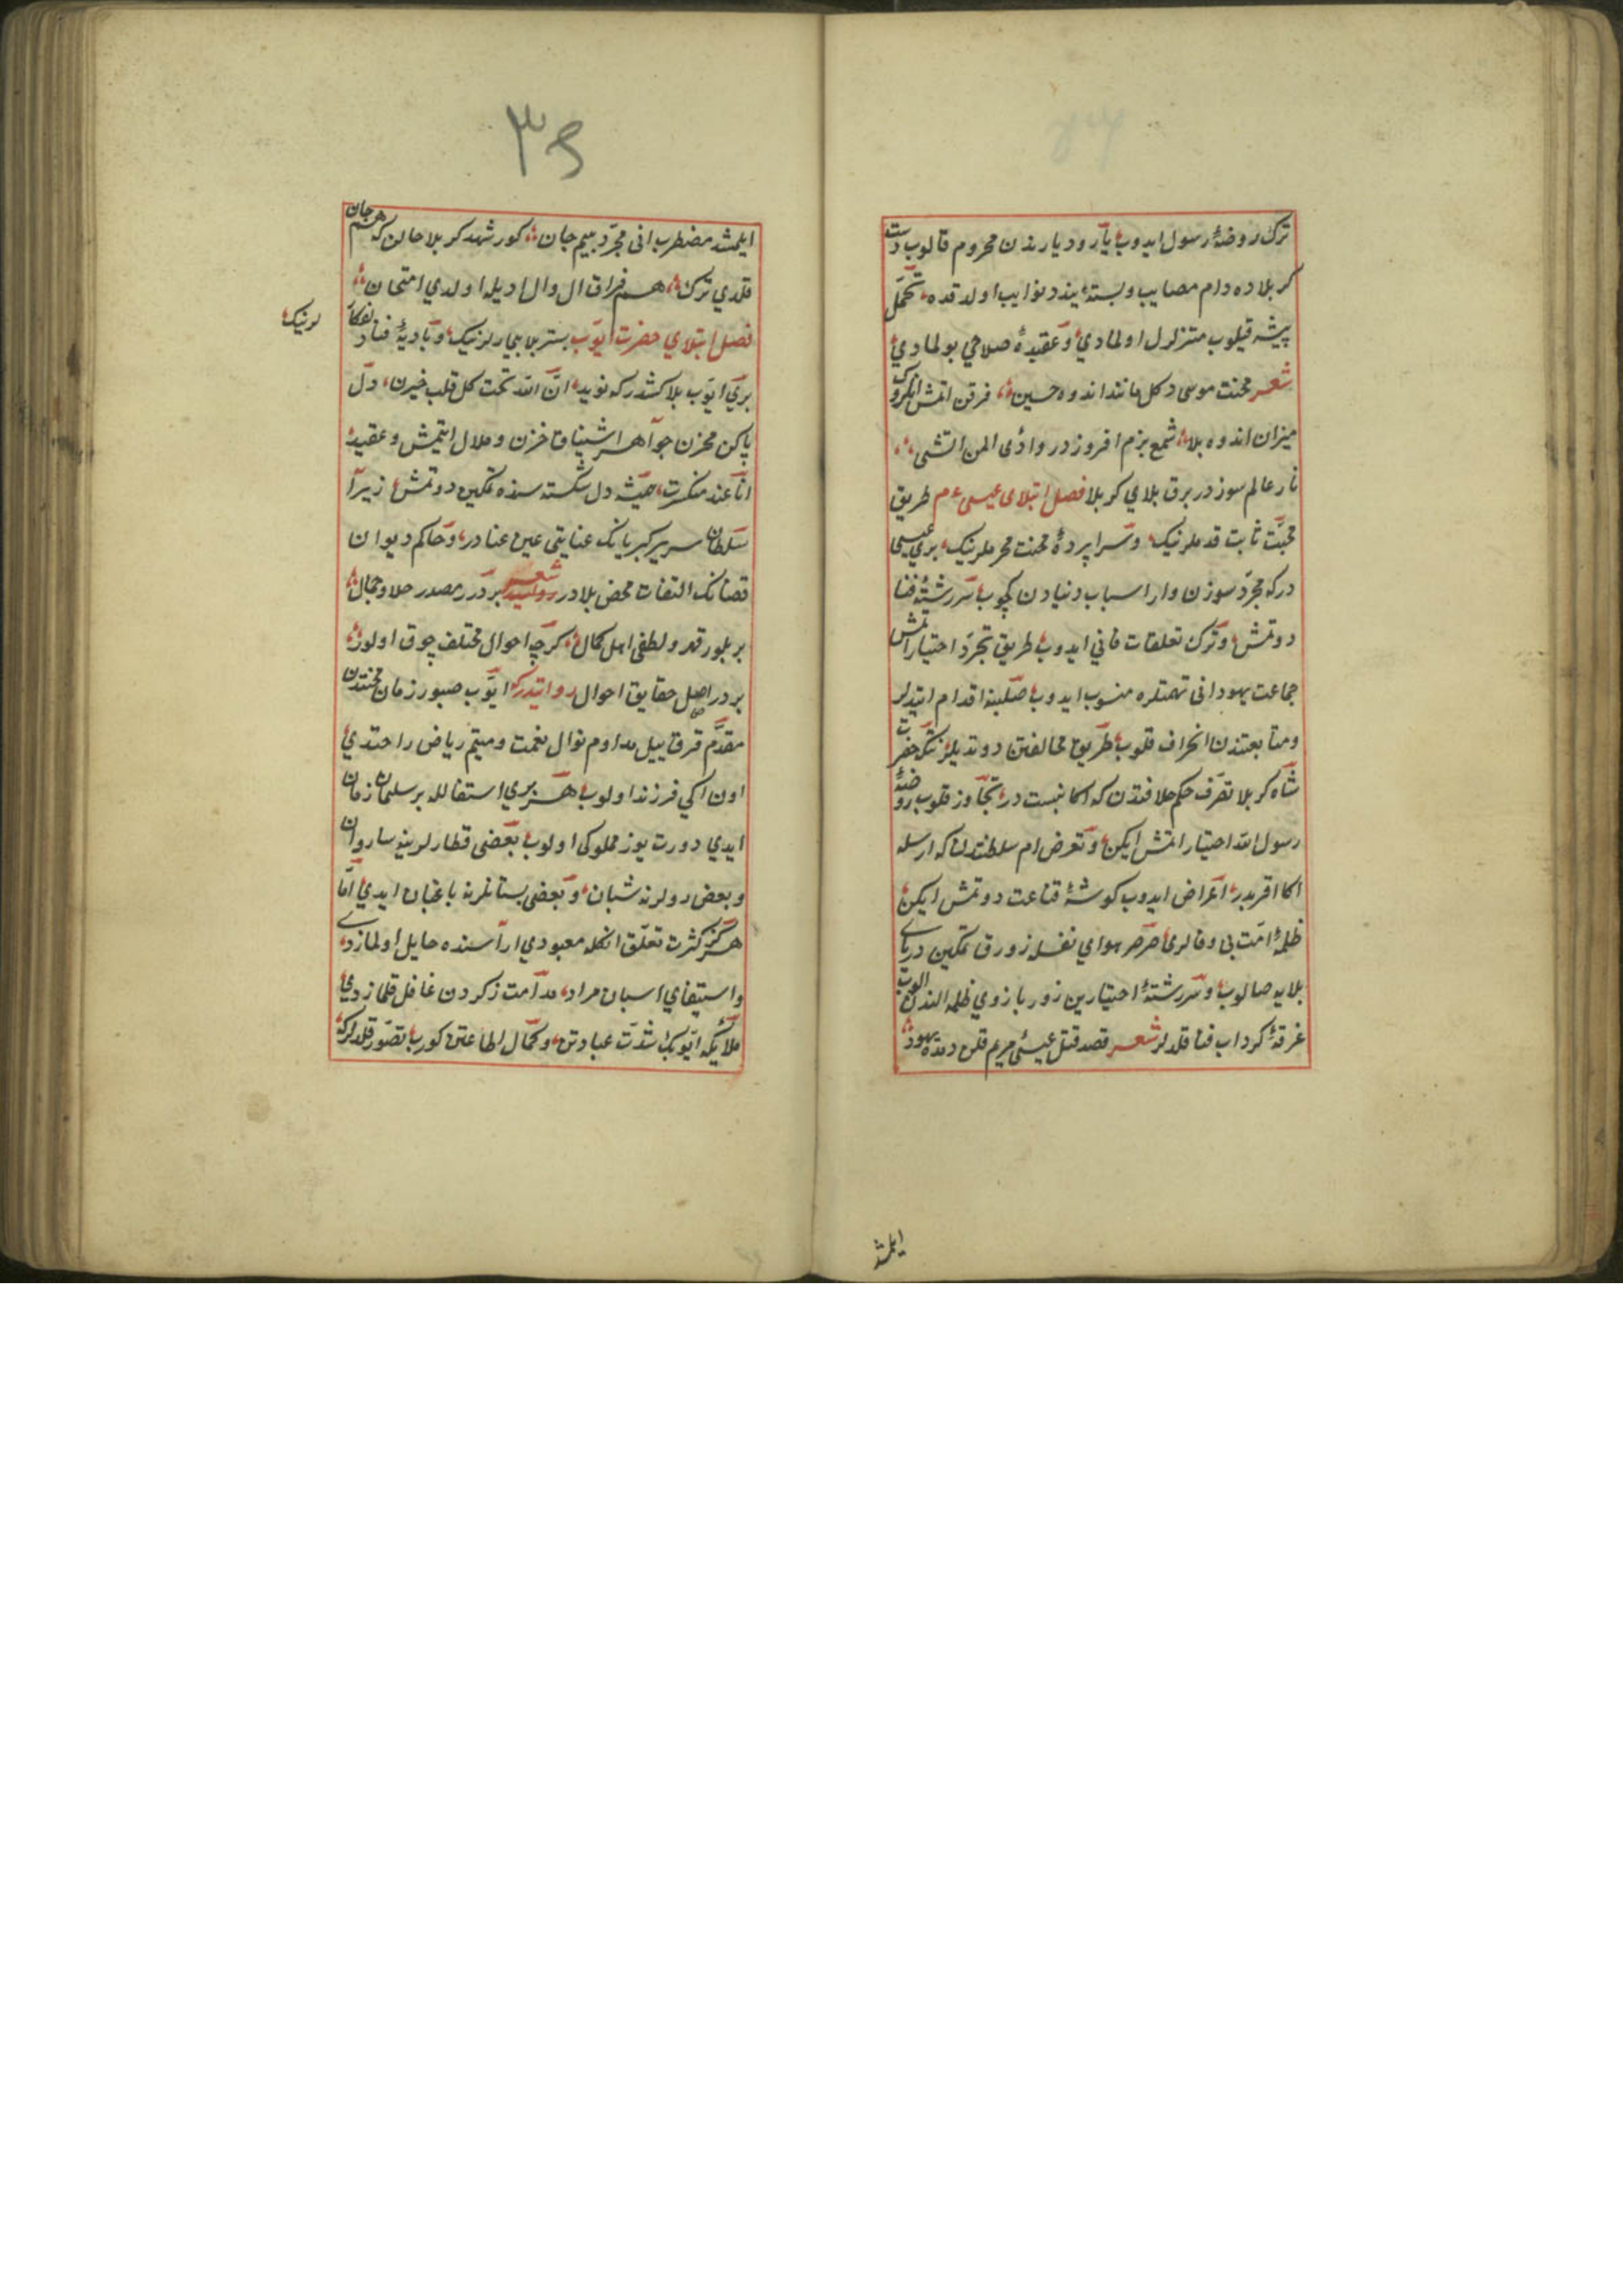 ترك روضۀ رسول ایدوب یار و دیارندن محروم قالوب دشت
كربلاده دام مصایب و بستۀ بند نوایب اولدقده تحمل
پیشه قیلوب متزلزل اولمادی و عقیدۀ صلاحی بولمادی
شعر محنت موسی دكل مانند اندوه حسین فرقن اتمش
میزان اندوه بلا شمع بزم افروز در وادئ ایمن اتشی
نار عالم سوزدر برق بلای كربلا فصل ابتلای عیسی عم طریق
محبت ثابت قدملرنیك و سراپردۀ محنت محرملرنیك بری عیسی
دركه مجرد سوزن وار اسباب دنیادن كچوب سررشتۀ فنا
دوتمش و ترك تعلقات فانی ایدوب طریق تجرد اختیار اتمش
جماعت یهود انی تهمتلره منسوب ایدوب صلبنه اقدام ایتدیلر
و متابعتندن انحراف قلوب طریق مخالفتن دوتدیلر حضرت
شاه كربلا تصرف حكم خلافتدن كه اكا نسبت در تجاوز قلوب روضۀ
رسول الله اختیار اتمش ایكن و تعرض ام سلطنتدن كه ارسله
اكا اقربدر اعراض ایدوب كوشۀ قناعت دوتمش ایكن
ظلمۀ امت بی وفالری صرصر هوای نفسله زورق تمكین دریای
بلایه صالوب و سررشتۀ اختیارین زور بازوی ظلمله الندن الوب
غرقۀ كرداب فنا قلدیلر شعر قصد قتل عیسئ مریم قلن دمده یهود
ایلمشد
۳۶
ایلمشد مضطرب انی مجرد بیم جان كور شهد كربلا حالن كه هم جان
قلدی ترك هم فراق ال و اولادیله اولدی امتحان
فصل ابتلای حضرت ایوب بستر بلا بیمارلرنیك و بادیۀ فنا
لرنیك
بری ایوب بلاكشدر كه نوید ان الله تحت كل قلب حزین دل
پاكن مخزن جواهر اشتیاق حزن و ملال ایتمش و عقیدۀ
انا عند منكسرت دل شكسته سنده تمكین دوتمش زیرا
سلطان سریر كبریانك عنایتی عین عنادر و حاكم دیوان
قضانك التفات محض بلادر شعر بردر مصدر جلال و جمال
بر بلور قهر و لطفی اهل كمال كرچه احوال مختلف چوق اولور
بردر اصل حقایق احوال روایتدر كه ایوب صبور زمان محنتدن
مقدم قرق ییل مداوم نوال نعمت و مقیم ریاض راحتدی
اون ایكی فرزند اولوب هر بری استقلاله بر سلیمان زمان
ایدی دورت یوز مملوكی اولوب بعضی قطارلرینه ساروان
و بعض رولرنه شبان و بعضی بستانلرنه باغبان ایدی اما
هرگز كثرت تعلق انكله معبودی اراسنده حایل اولمازدی
و استیفای اسباب مراد مداومت ذكردن غافل قلمازدی
ملایكه ایوبك شدت عبادتن و كمال اطاعتن كوروب تصور قلدلركه